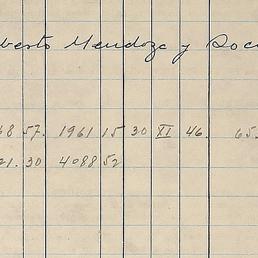 berto Mendoza y Roca
68 57. 1961 15 30 XI 46. 65.
21. 30 4088 52